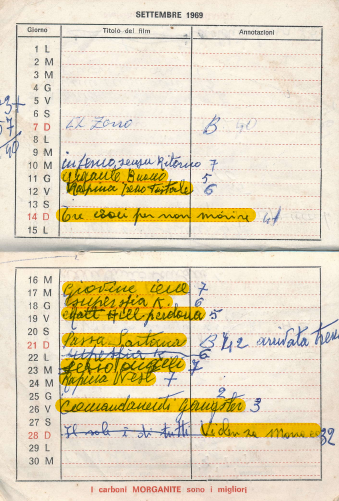 SETTEMBRE 1969
Giorno Titolo del film Annotazioni
1 L
2 M
3 M
4 G
5 V
6 S
7 D El Zorro B 90
8 L
9 M
10 M inferno senza Ritorno 7
11 G gigante Buono 5
12 V Rapina 6
13 S
14 D Tre croci per non morire 41
15 L
16 M
17 M Giovine iene 7
18 G superspia K. 6
19 V Matt Hell perdona 5
20 S
21 D Passa Sartana B 42 arrivata
22 L superspia K 6
23 M 7
24 M Rapina West 7
25 G 2
26 V Comandamenti gangster 3
27 S
28 D Il sole è di tutti 32
29 L
30 M
I carboni MORGANITE sono i migliori